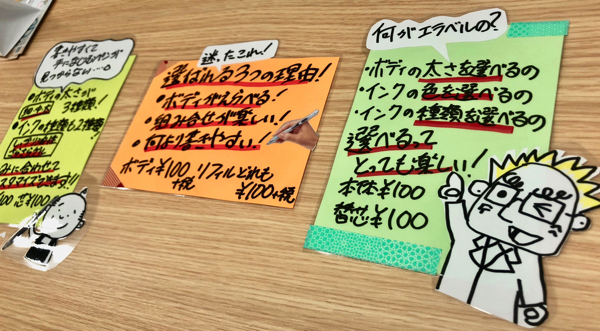 書きやすくて
手になじむペンが
見つからない…。
・ボディの太さが
3種類!
・インクの種類も2種類!
迷ったこれ!
選ばれる3つの理由!
・ボディがえらべる!
・組み合せが楽しい!
・何より書きやすい!
ボディ¥100 リフィルどれも
+税 ¥100+税
何がエラベルの?
・ボディの太さを選べるの
・インクの色を選べるの
・インクの種類を選べるの
選べるって
とっても楽しい!
本体¥100
替芯¥100